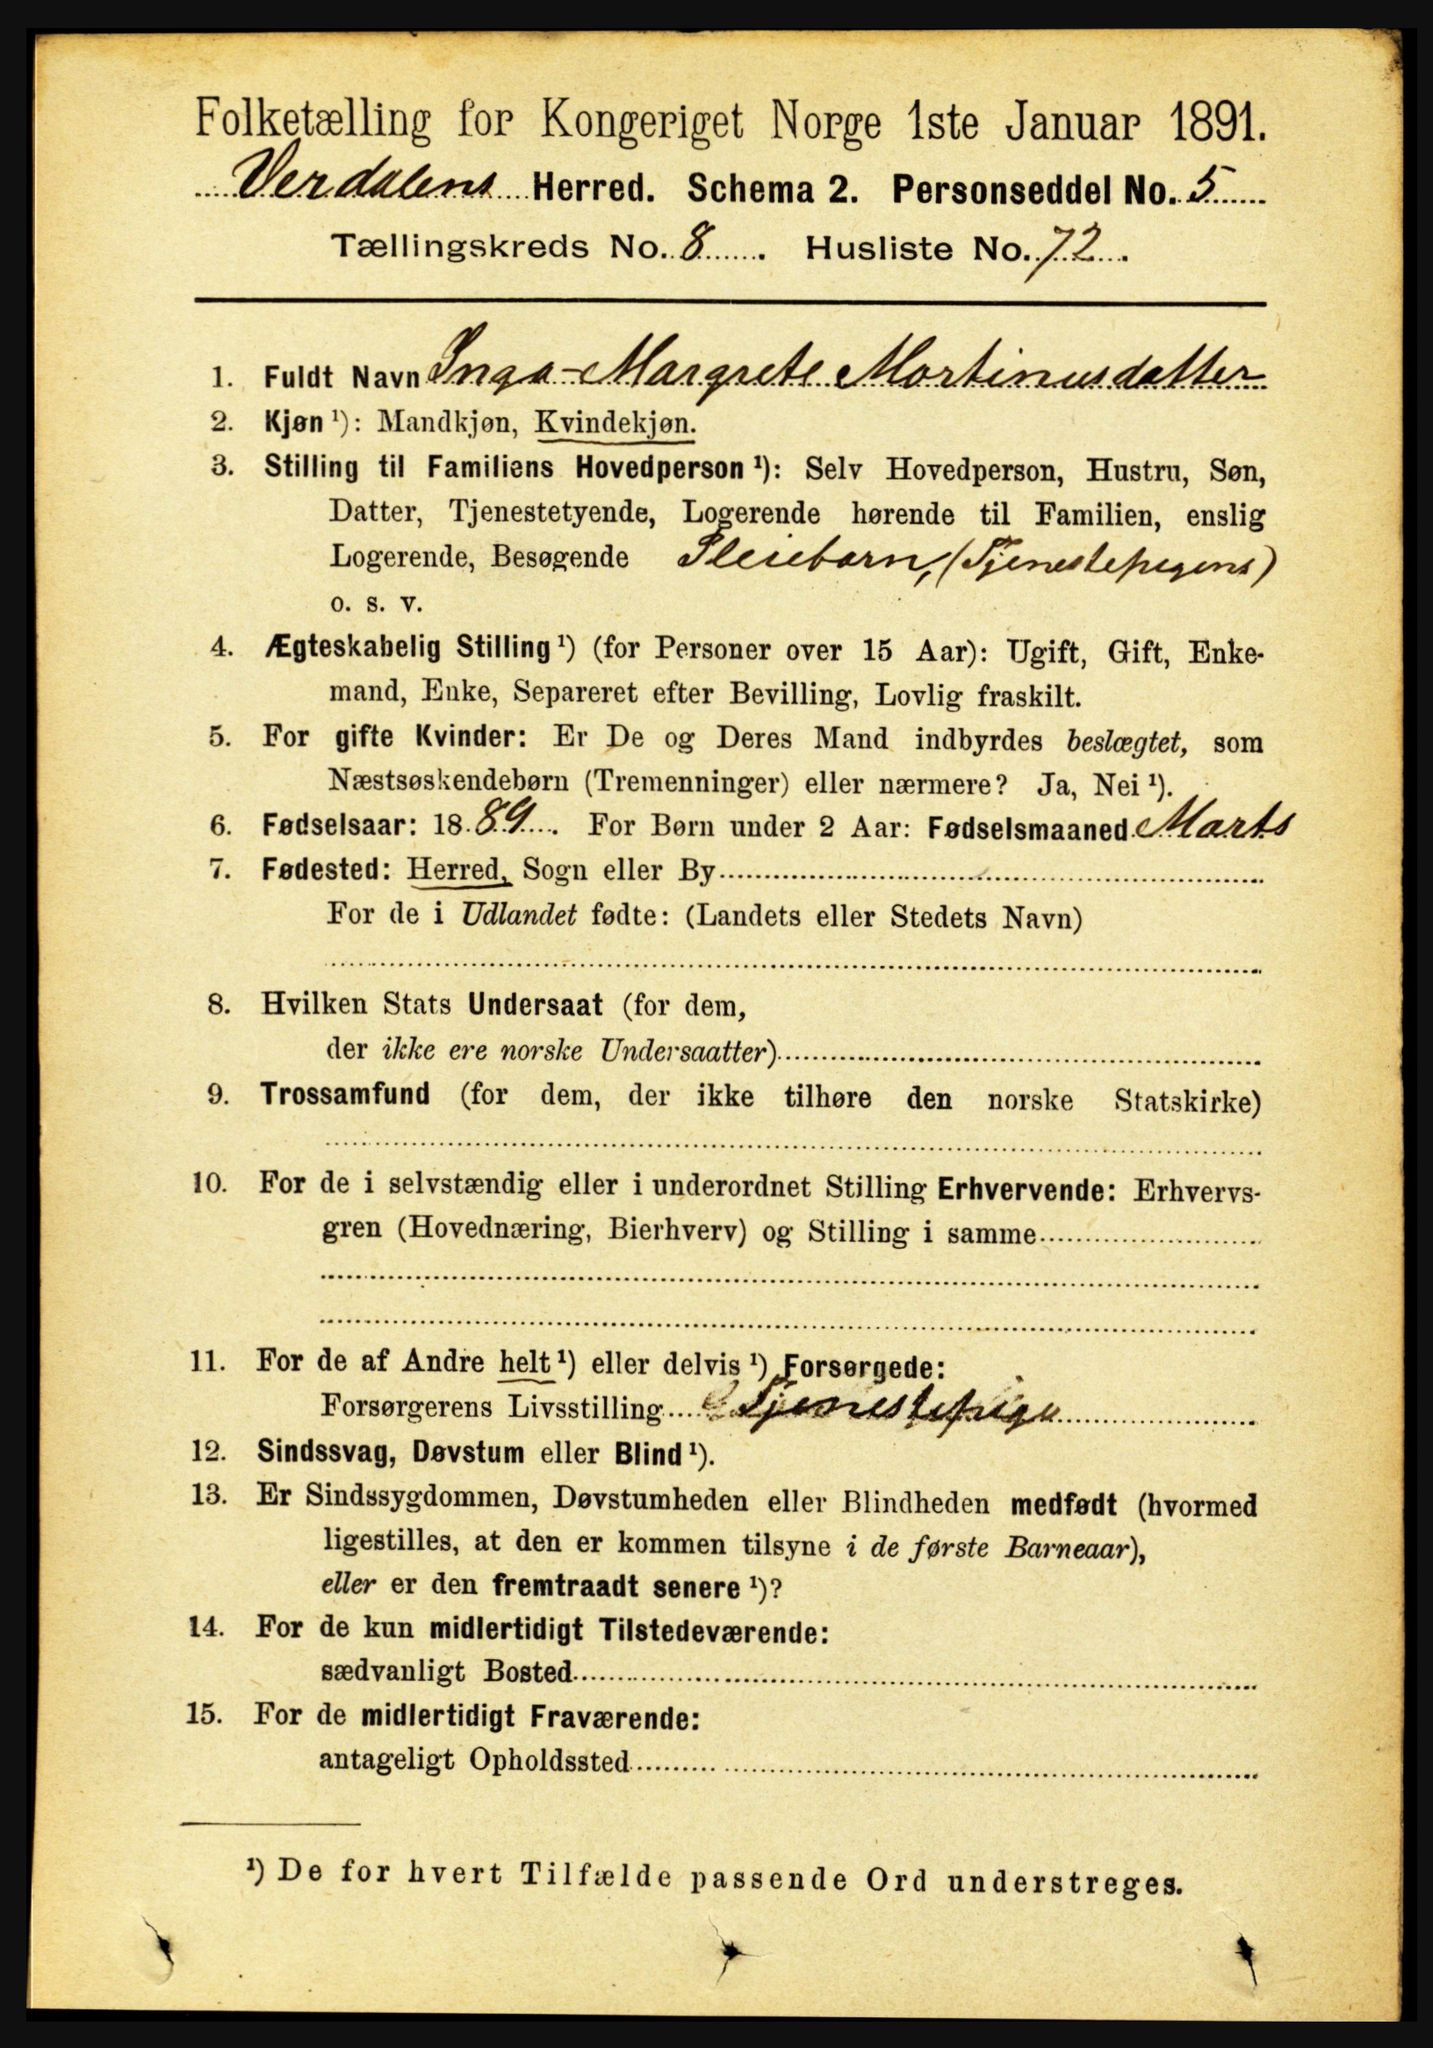 Folketælling for Kongeriget Norge 1ste Januar 1891.
Verdalens Herred. Schema 2. Personseddel No. 5
Tællingskreds No. 8. Husliste No. 72.
1. Fuldt Navn Inga-Margrete Martinusdatter
2. Kjøn ¹): Mandkjøn, Kvindekjøn.
3. Stilling til Familiens Hovedperson ¹): Selv Hovedperson, Hustru, Søn,
Datter, Tjenestetyende, Logerende hørende til Familien, enslig
Logerende, Besøgende Pleiebarn, (Tjenestepigens)
o. s. v.
4. Ægteskabelig Stilling ¹) (for Personer over 15 Aar): Ugift, Gift, Enke-
mand, Enke, Separeret efter Bevilling, Lovlig fraskilt.
5. For gifte Kvinder: Er De og Deres Mand indbyrdes beslægtet, som
Næstsøskendebørn (Tremenninger) eller nærmere? Ja, Nei ¹).
6. Fødselsaar: 1889. For Børn under 2 Aar: Fødselsmaaned Marts
7. Fødested: Herred, Sogn eller By
For de i Udlandet fødte: (Landets eller Stedets Navn)
8. Hvilken Stats Undersaat (for dem,
der ikke ere norske Undersaatter)
9. Trossamfund (for dem, der ikke tilhøre den norske Statskirke)
10. For de i selvstændig eller i underordnet Stilling Erhvervende: Erhvervs-
gren (Hovednæring, Bierhverv) og Stilling i samme
11. For de af Andre helt ¹) eller delvis ¹) Forsørgede:
Forsørgerens Livsstilling Tjenestepige
12. Sindssvag, Døvstum eller Blind ¹).
13. Er Sindssygdommen, Døvstumheden eller Blindheden medfødt (hvormed
ligestilles, at den er kommen tilsyne i de første Barneaar),
eller er den fremtraadt senere ¹)?
14. For de kun midlertidigt Tilstedeværende:
sædvanligt Bosted
15. For de midlertidigt Fraværende:
antageligt Opholdssted
¹) De for hvert Tilfælde passende Ord understreges.